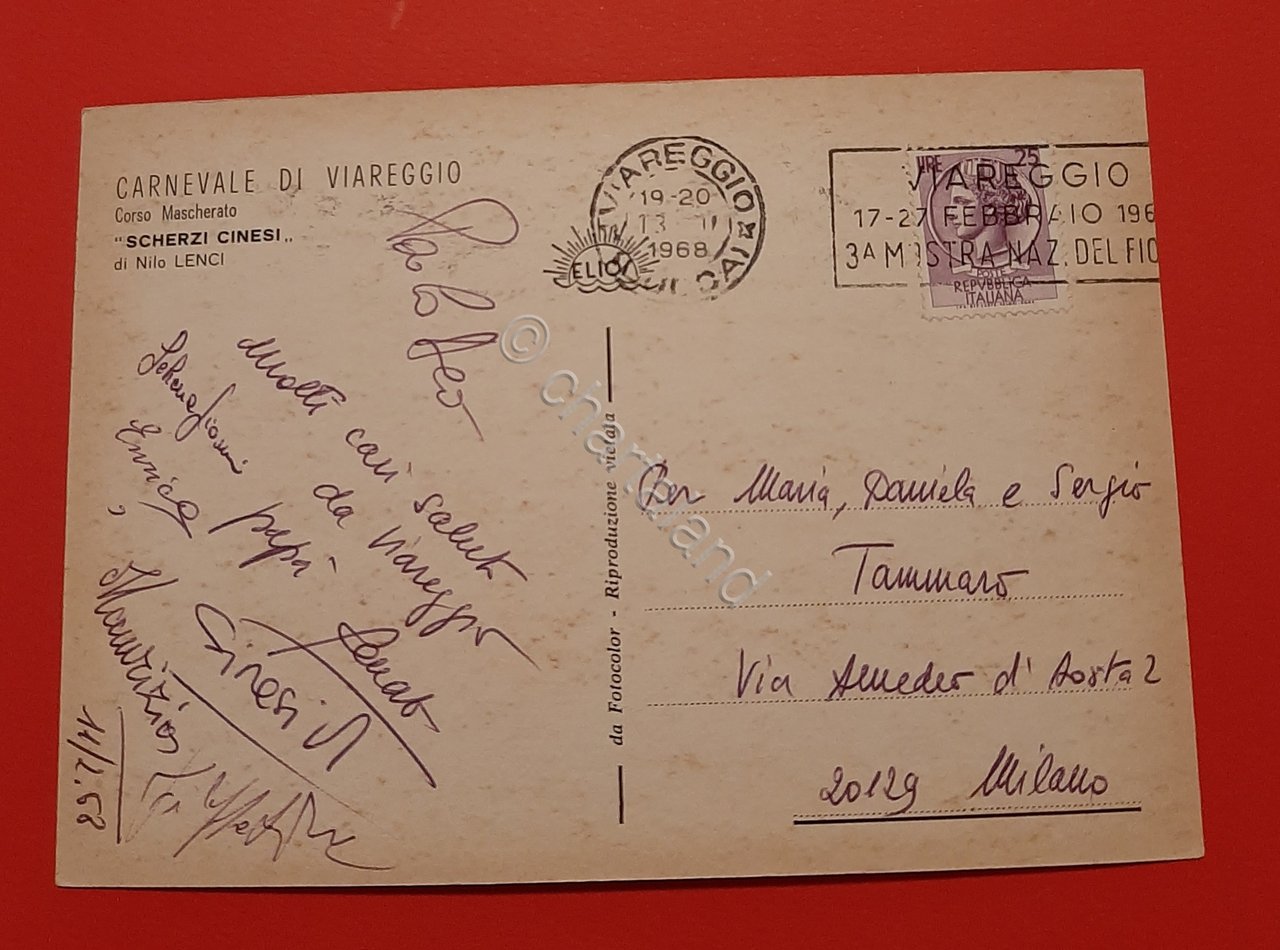 CARNEVALE DI VIAREGGIO
Corso Mascherato
"SCHERZI CINESI„
di Nilo LENCI
VIAREGGIO
19-20
1968
ELIOS
LIRE 25
POSTE
REPVBBLICA
ITALIANA
VIAREGGIO
17-27 FEBBRAIO 196
3A MOSTRA NAZ. DEL FIO
Molti cari saluti
da Viareggio
papà
Enrico
Maurizio
da Fotocolor - Riproduzione vietata
Per Maria, Daniela e Sergio
Tammaro
Via Amedeo d'Aosta 2
20129 Milano
© chartaland